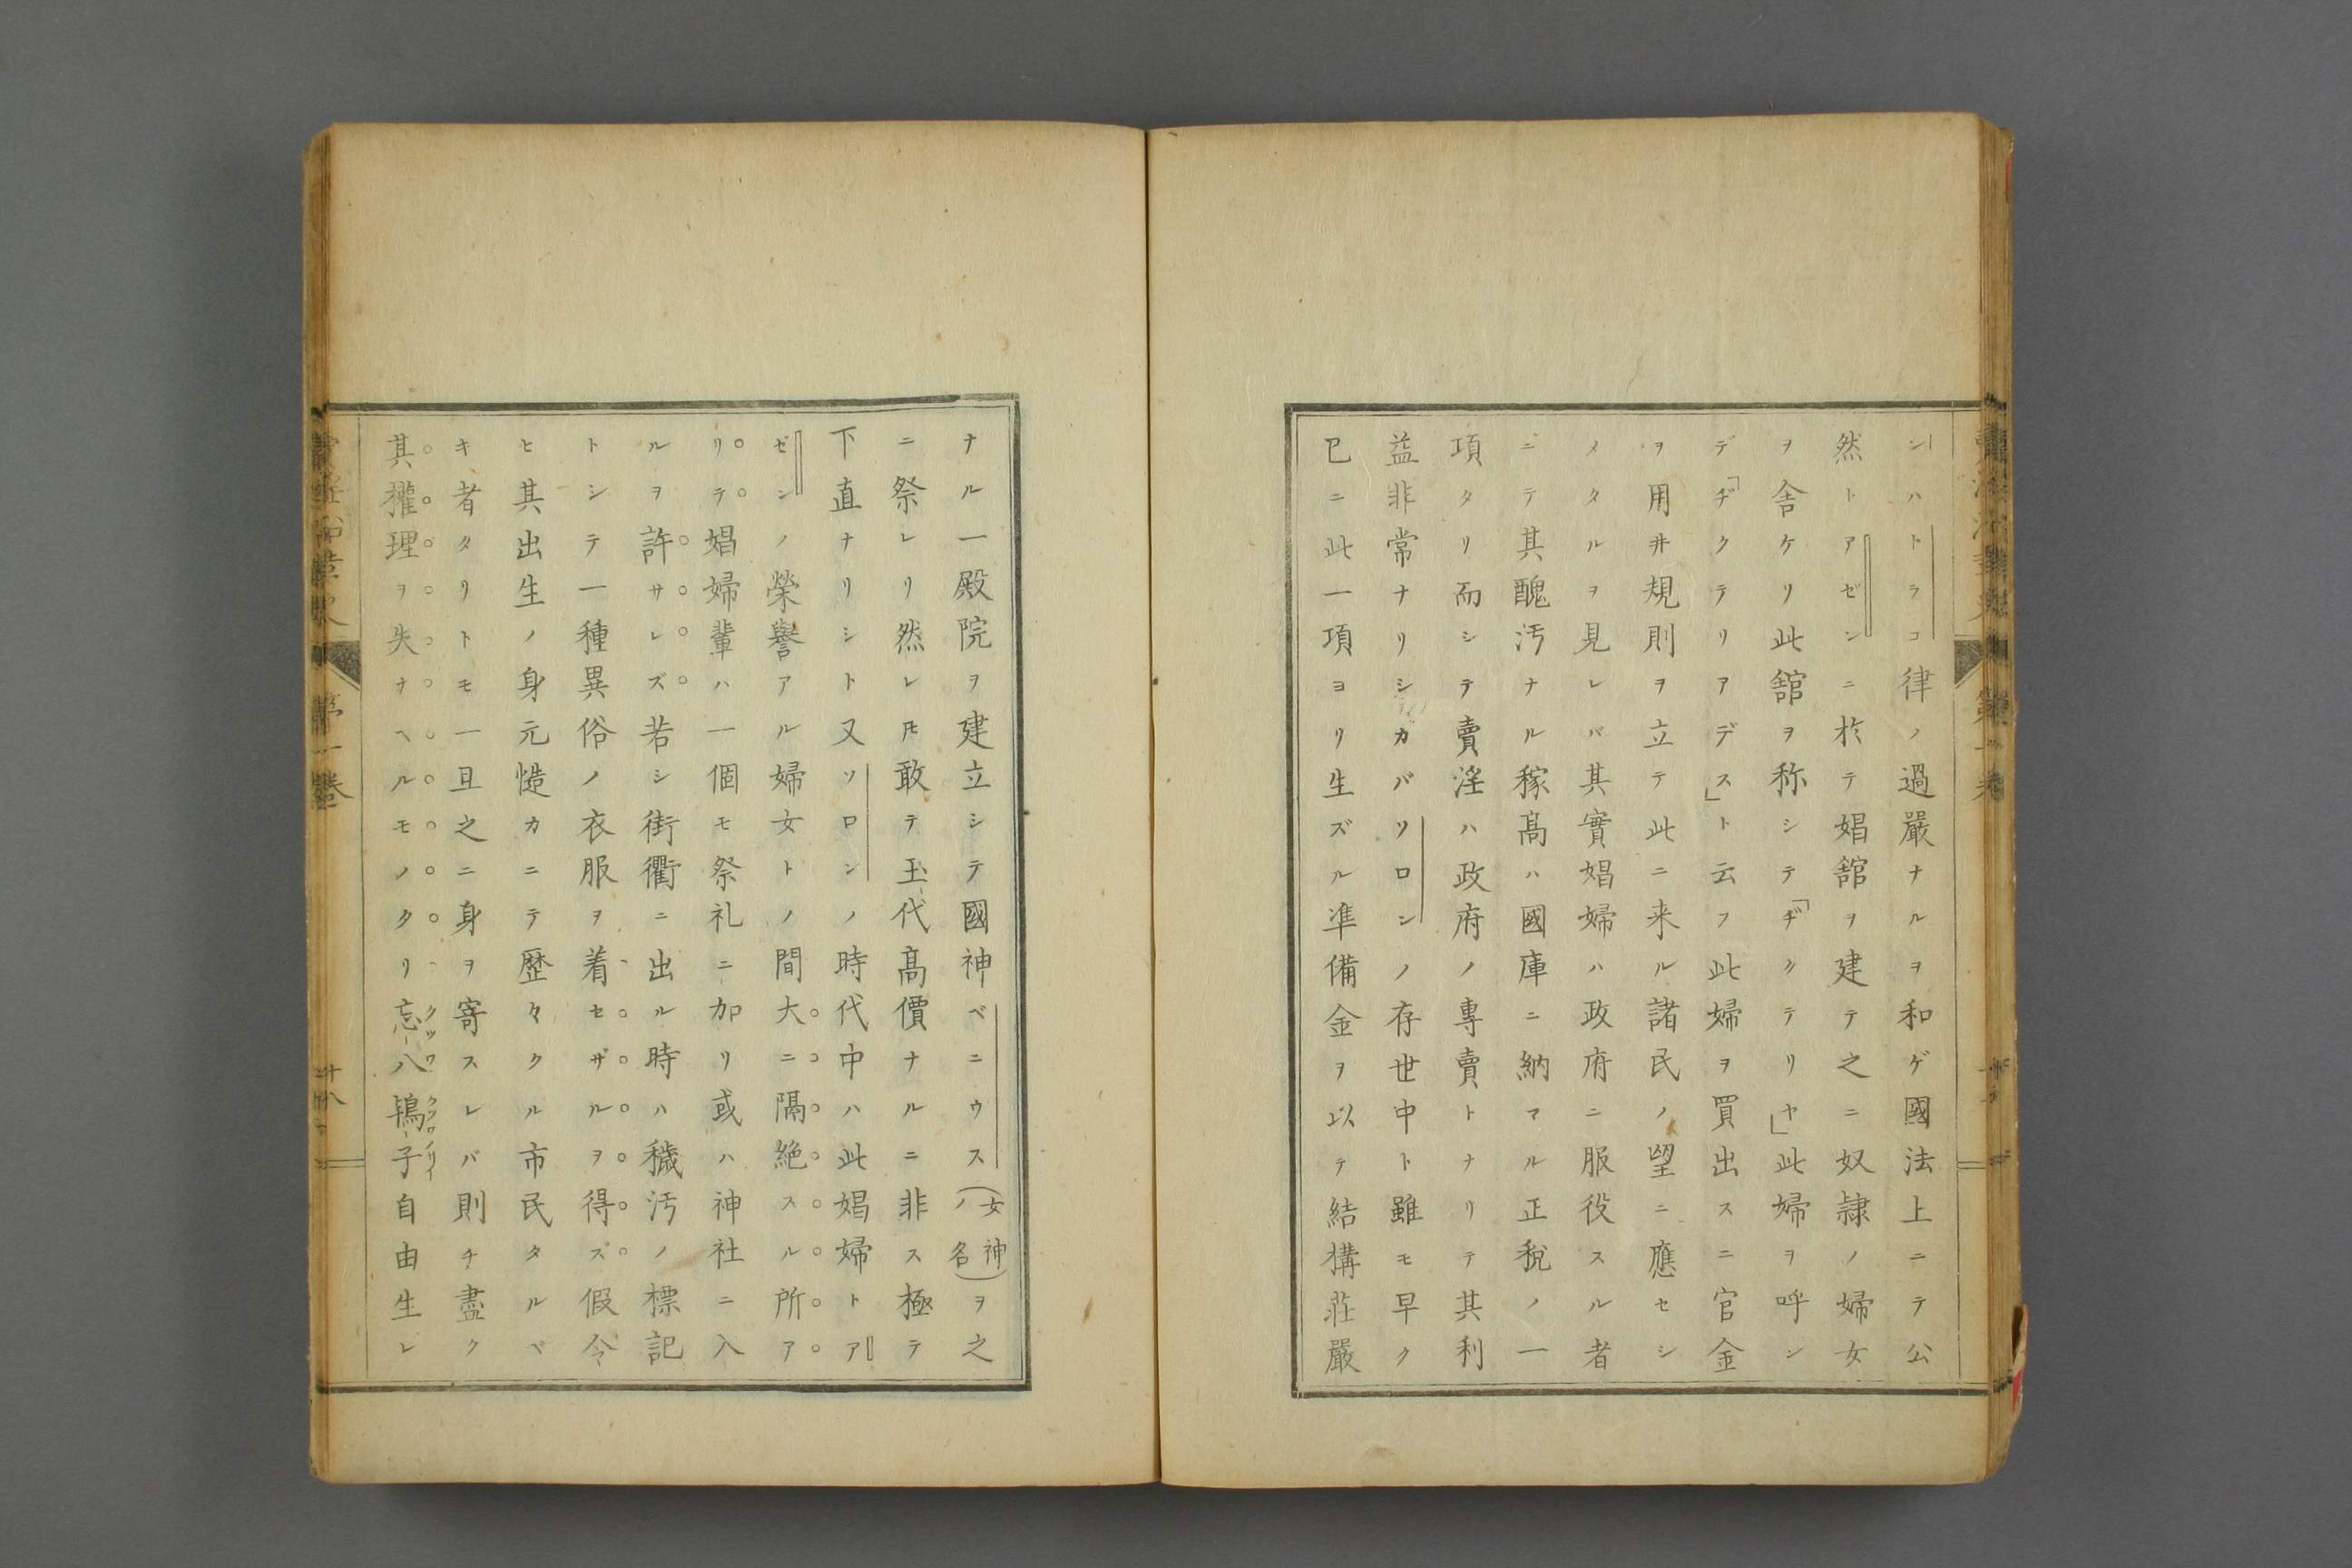 ンハトラコ律ノ過嚴ナルヲ和ゲ國法上ニテ公
然トアゼンニ於テ娼舘ヲ建テ之ニ奴隷ノ婦女
ヲ舎ケリ此舘ヲ称シテ「ヂクテリヤ」此婦ヲ呼ン
デ「ヂクテリアデス」ト云フ此婦ヲ買出スニ官金
ヲ用井規則ヲ立テ此ニ来ル諸民ノ望ニ應セシ
メタルヲ見レバ其實娼婦ハ政府ニ服役スル者
ニテ其醜汚ナル稼高ハ國庫ニ納マル正税ノ一
項タリ而シテ賣淫ハ政府ノ專賣トナリテ其利
益非常ナリシカバソロンノ存世中ト雖モ早ク
已ニ此一項ヨリ生ズル準備金ヲ以テ結構荘嚴
ナル一殿院ヲ建立シテ國神ベニウス(女神ノ名)ヲ之
ニ祭レリ然レ𪜈敢テ玉代高價ナルニ非ス極テ
下直ナリシト又ソロンノ時代中ハ此娼婦トア
ゼンノ榮譽アル婦女トノ間大ニ隔絶スル所ア
リテ娼婦輩ハ一個モ祭礼ニ加リ或ハ神社ニ入
ルヲ許サレズ若シ街衢ニ出ル時ハ穢汚ノ標記
トシテ一種異俗ノ衣服ヲ着セザルヲ得ズ假令
ヒ其出生ノ身元慥カニテ歴々タル市民タルベ
キ者タリトモ一旦之ニ身ヲ寄スレバ則チ盡ク
其權理ヲ失ナヘルモノタリ忘八鴇子自由生レ
第一巻
十八